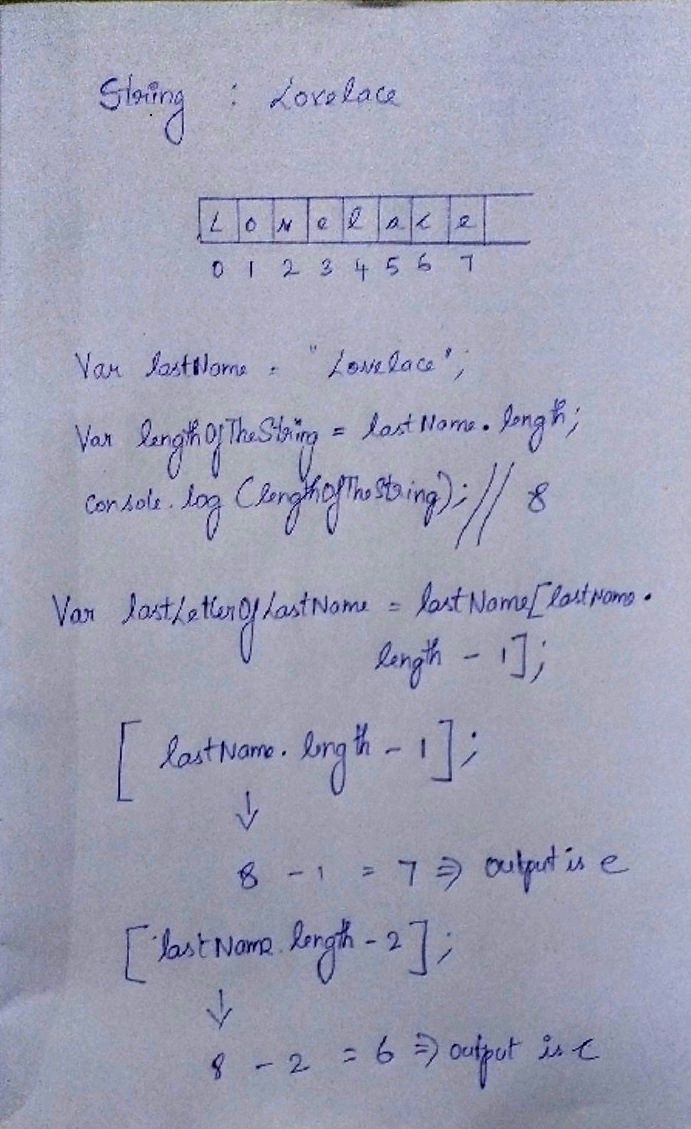 String : Lovelace
L o v e l a c e
0 1 2 3 4 5 6 7
Var lastName = "Lovelace";
Var lengthOfTheString = lastName.length;
console.log (lengthOfTheString); // 8
Var lastLetterOfLastName = lastName[lastName.
length - 1];
[ lastName.length - 1 ];
↓
8 - 1 = 7 ⇒ output is e
[ lastName.length - 2 ];
↓
8 - 2 = 6 ⇒ output is c